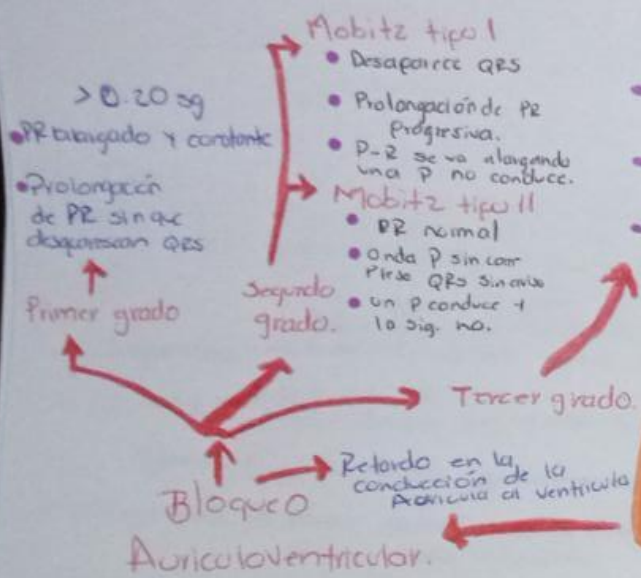 > 0.20 sg
PR alargado y constante
Prolongación
de PR sin que
desaparezcan QRS
Primer grado
Mobitz tipo I
Desaparece QRS
Prolongación de PR
Progresiva.
P-R se va alargando
una P no conduce.
Mobitz tipo II
PR normal
Onda P sin com
QRS sin aviso
un P conduce y
la sig. no.
Segundo
grado.
Tercer grado.
Retardo en la
conducción de la
Auricula al ventriculo
Bloqueo
Auriculoventricular.